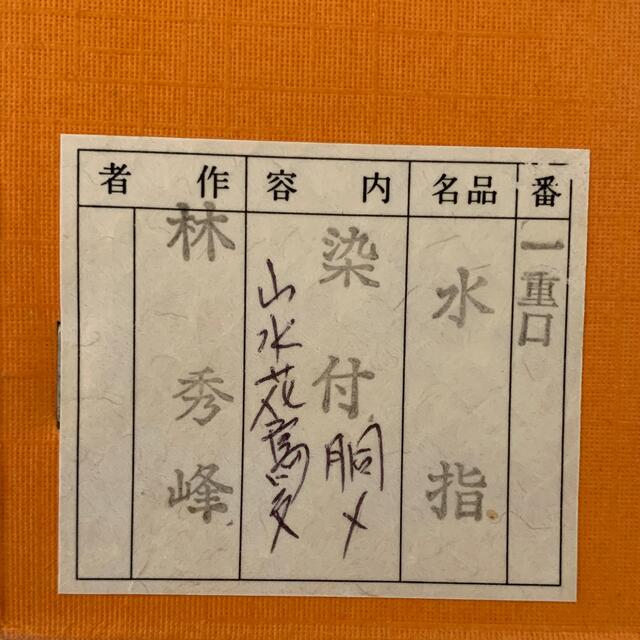 番
一重口
品名
水指
内容
染付 胴〆
山水花鳥
作者
林秀峰